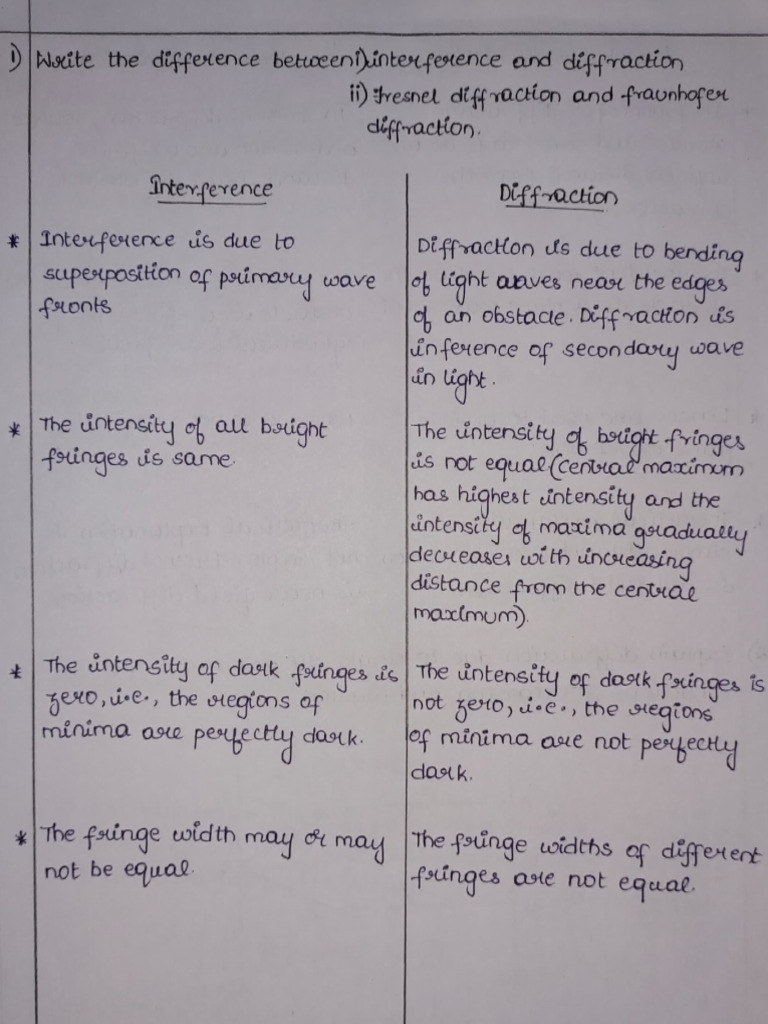 1) Write the difference between i) interference and diffraction
ii) Fresnel diffraction and fraunhofer
diffraction.
Interference
* Interference is due to
superposition of primary wave
fronts
* The intensity of all bright
fringes is same.
* The intensity of dark fringes is
zero, i.e., the regions of
minima are perfectly dark.
* The fringe width may or may
not be equal.
Diffraction
Diffraction is due to bending
of light waves near the edges
of an obstacle. Diffraction is
inference of secondary wave
in light.
The intensity of bright fringes
is not equal (central maximum
has highest intensity and the
intensity of maxima gradually
decreases with increasing
distance from the central
maximum).
The intensity of dark fringes is
not zero, i.e., the regions
of minima are not perfectly
dark.
The fringe widths of different
fringes are not equal.